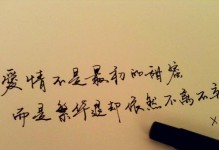 愛情不是最初的甜蜜
而是繁华退却依然不离不弃
×